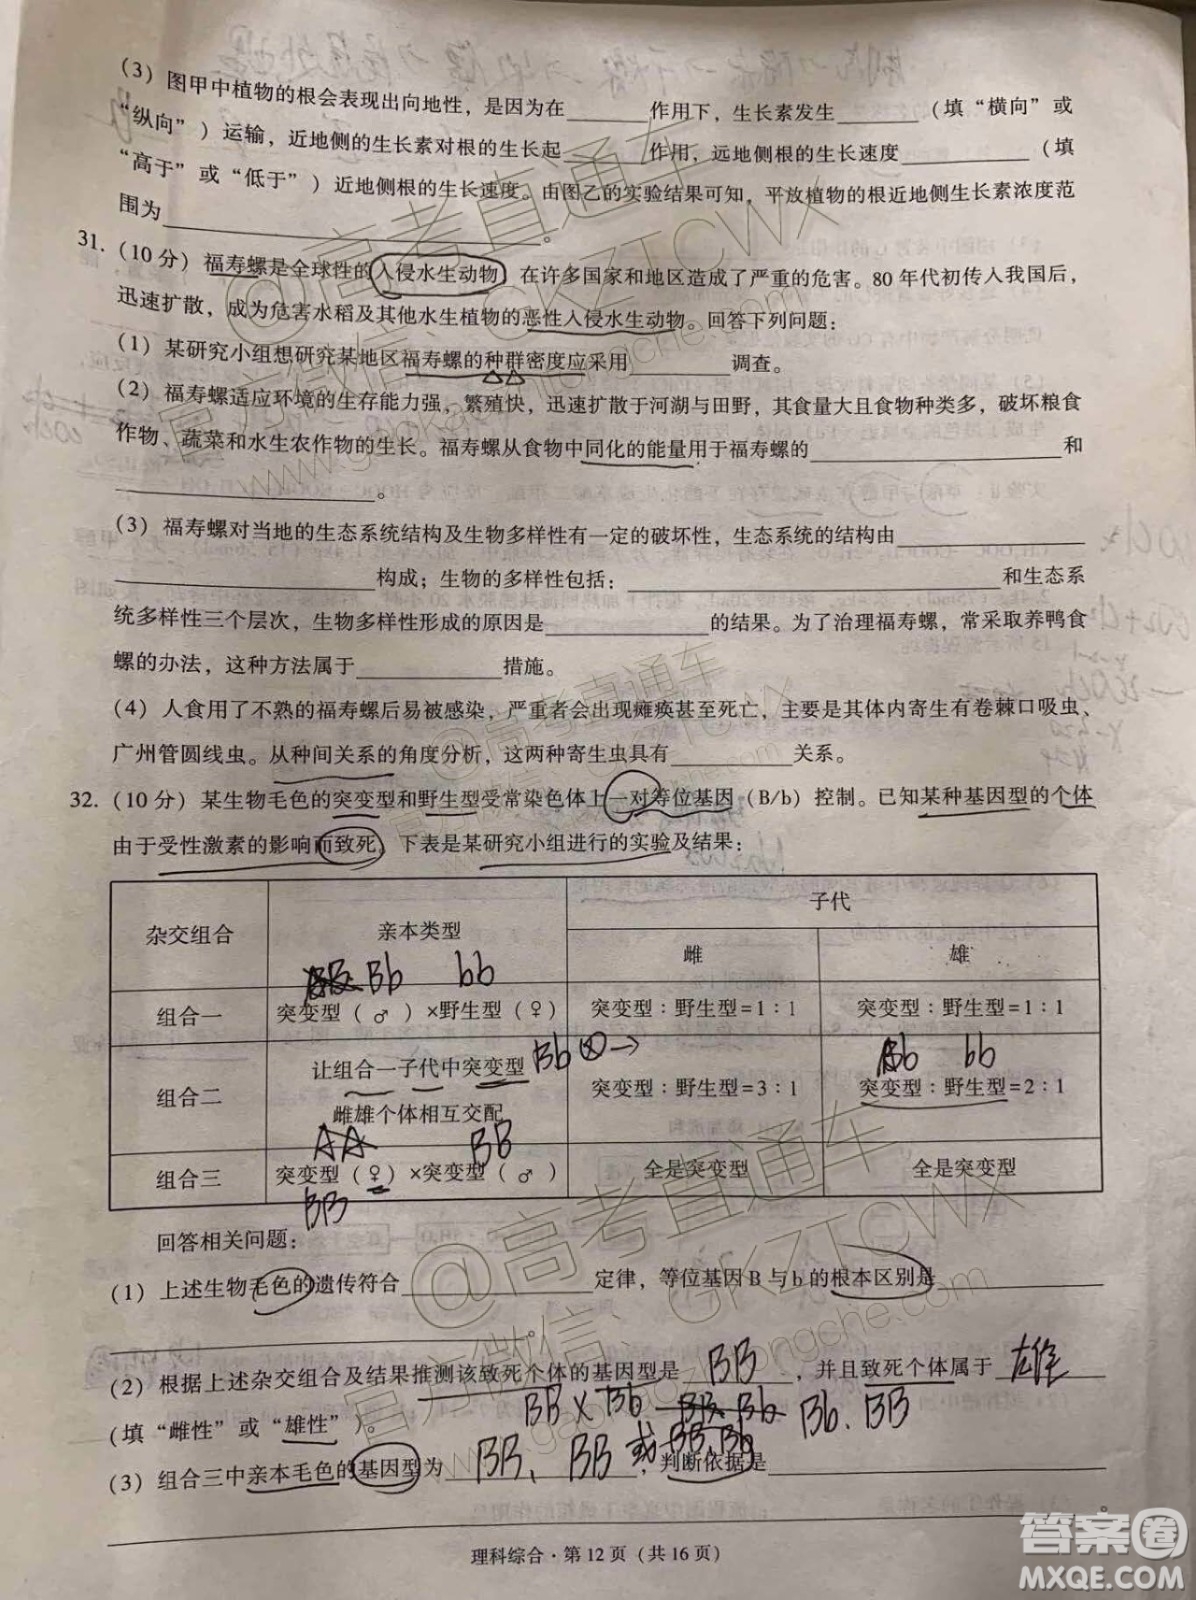 (3) 图甲中植物的根会表现出向地性，是因为在______作用下，生长素发生______（填“横向”或
“纵向”）运输，近地侧的生长素对根的生长起______作用，远地侧根的生长速度______（填
“高于”或“低于”）近地侧根的生长速度。由图乙的实验结果可知，平放植物的根近地侧生长素浓度范
围为______。
31. (10分) 福寿螺是全球性的入侵水生动物，在许多国家和地区造成了严重的危害。80年代初传入我国后，
迅速扩散，成为危害水稻及其他水生植物的恶性入侵水生动物。回答下列问题：
(1) 某研究小组想研究某地区福寿螺的种群密度应采用______调查。
(2) 福寿螺适应环境的生存能力强，繁殖快，迅速扩散于河湖与田野，其食量大且食物种类多，破坏粮食
作物、蔬菜和水生农作物的生长。福寿螺从食物中同化的能量用于福寿螺的______和
______。
(3) 福寿螺对当地的生态系统结构及生物多样性有一定的破坏性，生态系统的结构由______
______构成；生物的多样性包括：______和生态系
统多样性三个层次，生物多样性形成的原因是______的结果。为了治理福寿螺，常采取养鸭食
螺的办法，这种方法属于______措施。
(4) 人食用了不熟的福寿螺后易被感染，严重者会出现瘫痪甚至死亡，主要是其体内寄生有卷棘口吸虫、
广州管圆线虫。从种间关系的角度分析，这两种寄生虫具有______关系。
32. (10分) 某生物毛色的突变型和野生型受常染色体上一对等位基因（B/b）控制。已知某种基因型的个体
由于受性激素的影响而致死，下表是某研究小组进行的实验及结果：
杂交组合 亲本类型 子代
雌 雄
Bb bb
组合一 突变型（♂）×野生型（♀） 突变型：野生型=1：1 突变型：野生型=1：1
Bb ⊗→ Bb bb
组合二 让组合一子代中突变型
雌雄个体相互交配 突变型：野生型=3：1 突变型：野生型=2：1
AA BB
组合三 突变型（♀）×突变型（♂） 全是突变型 全是突变型
BB
回答相关问题：
(1) 上述生物毛色的遗传符合______定律，等位基因B与b的根本区别是______
______。
(2) 根据上述杂交组合及结果推测该致死个体的基因型是 BB ，并且致死个体属于 雄
(填“雌性”或“雄性”)。 BB × Bb BB Bb Bb. BB
(3) 组合三中亲本毛色的基因型为 BB、BB 或 BB、Bb ，判断依据是______
______。
理科综合·第12页（共16页）
@高考直通车
官方微信：GKZTCWX
www.gaokaozhitongche.com
@高考直通车
官方微信：GKZTCWX
www.gaokaozhitongche.com
答案圈
MXQE.COM